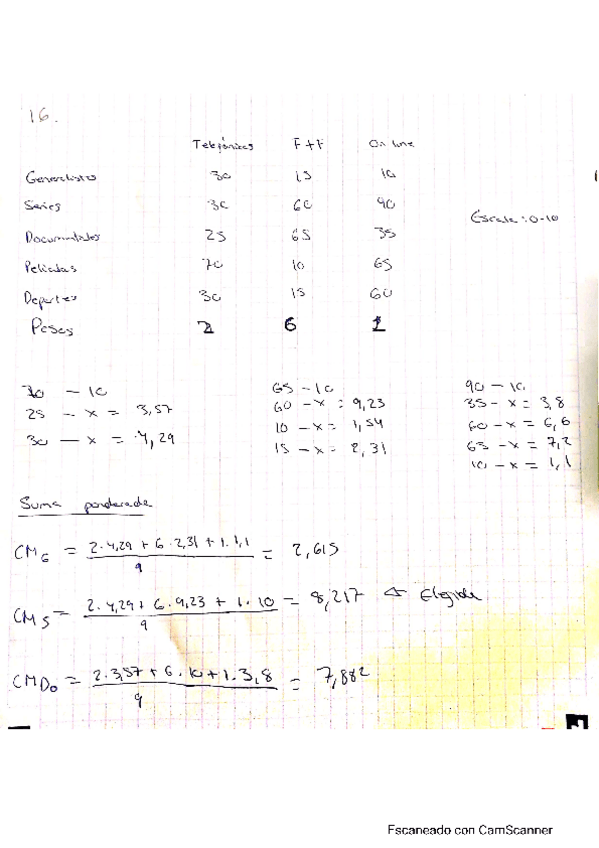 16.
Telefónicas F+F On line
Generalistas 30 15 10
Series 30 60 90
Escala: 0-10
Documentales 25 65 35
Películas 70 10 65
Deportes 30 15 60
Pesos 2 6 1
70 - 10
25 - x = 3,57
30 - x = 4,29
65 - 10
60 - x = 9,23
10 - x = 1,54
15 - x = 2,31
90 - 10
35 - x = 3,8
60 - x = 6,6
65 - x = 7,2
10 - x = 1,1
Suma ponderada
CM_G = 2·4,29 + 6·2,31 + 1·1,1 / 9 = 2,615
CM_S = 2·4,29 + 6·9,23 + 1·10 / 9 = 8,217 ⇐ Elegida
CM_Do = 2·3,57 + 6·10 + 1·3,8 / 9 = 7,882
Escaneado con CamScanner